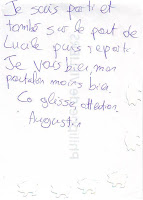 Je suis parti et
tombé sur le pont de
Lucile puis reparti.
Je vais bien, mon
pantalon moins bien.
Ca glisse, attention.
Augustin